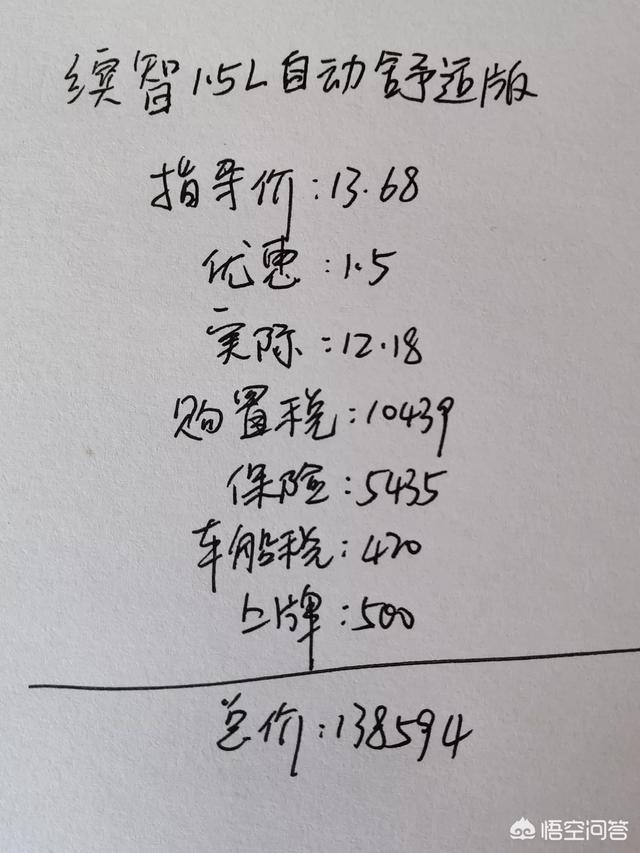 缤智1.5L自动舒适版
指导价:13.68
优惠:1.5
实际:12.18
购置税:10439
保险:5435
车船税:420
上牌:500
总价:138594
悟空问答